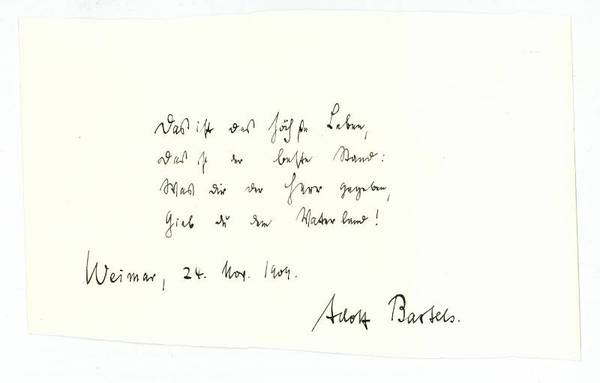 Das ist das höchste Leben,
Das ist der beste Stand:
Was dir der Herr gegeben,
Gieb du dem Vaterland!
Weimar, 24. Nov. 1909.
Adolf Bartels.